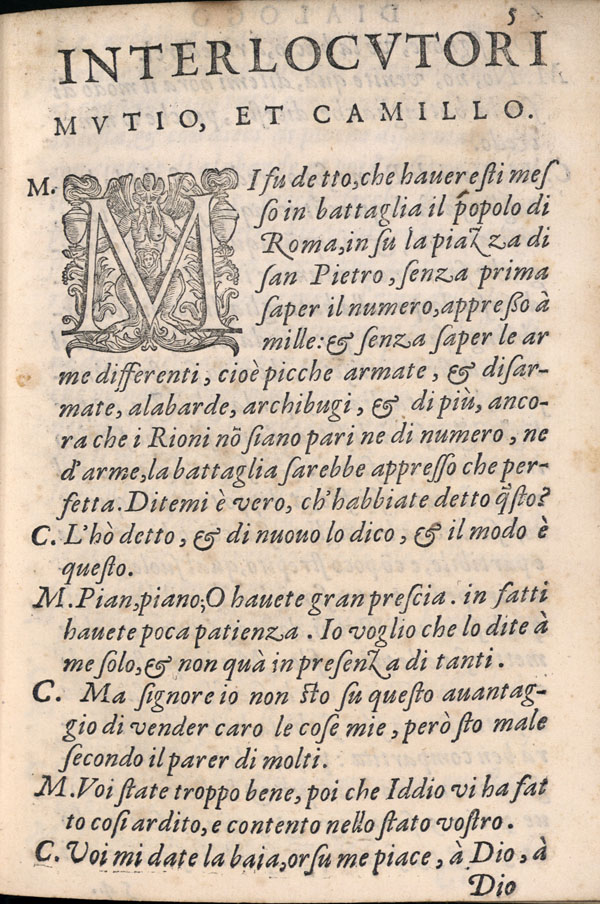 5
INTERLOCVTORI
MVTIO, ET CAMILLO.
M. MI fu detto, che hauereſti meſ
ſo in battaglia il popolo di
Roma, in ſu la piazza di
ſan Pietro, ſenza prima
ſaper il numero, appreſſo à
mille: & ſenza ſaper le ar
me differenti, cioè picche armate, & diſar-
mate, alabarde, archibugi, & di più, anco-
ra che i Rioni nō ſiano pari ne di numero, ne
d'arme, la battaglia ſarebbe appreſſo che per-
fetta. Ditemi è vero, ch'habbiate detto q̄ſto?
C. L'hò detto, & di nuouo lo dico, & il modo è
queſto.
M. Pian, piano; O hauete gran preſcia. in fatti
hauete poca patienza. Io voglio che lo dite à
me ſolo, & non quà in preſenza di tanti.
C. Ma ſignore io non ſto su queſto auantag-
gio di vender caro le coſe mie, però ſto male
ſecondo il parer di molti.
M. Voi ſtate troppo bene, poi che Iddio vi ha fat
to coſi ardito, e contento nello ſtato voſtro.
C. Voi mi date la baia, orſu me piace, à Dio, à
Dio